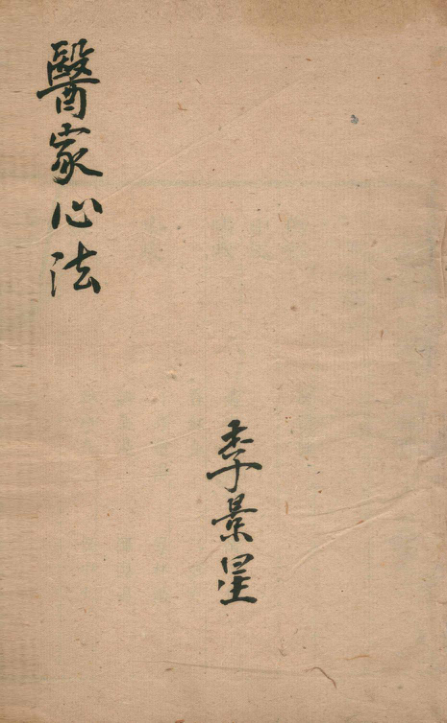 醫家心法
李景星